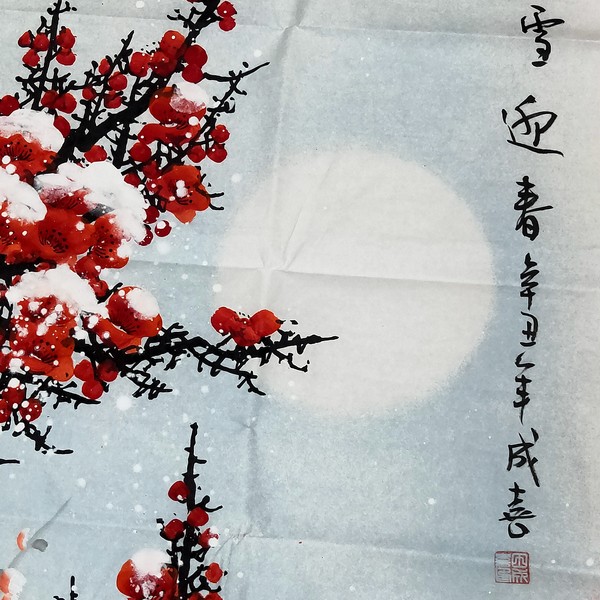 雪迎春辛丑年成喜